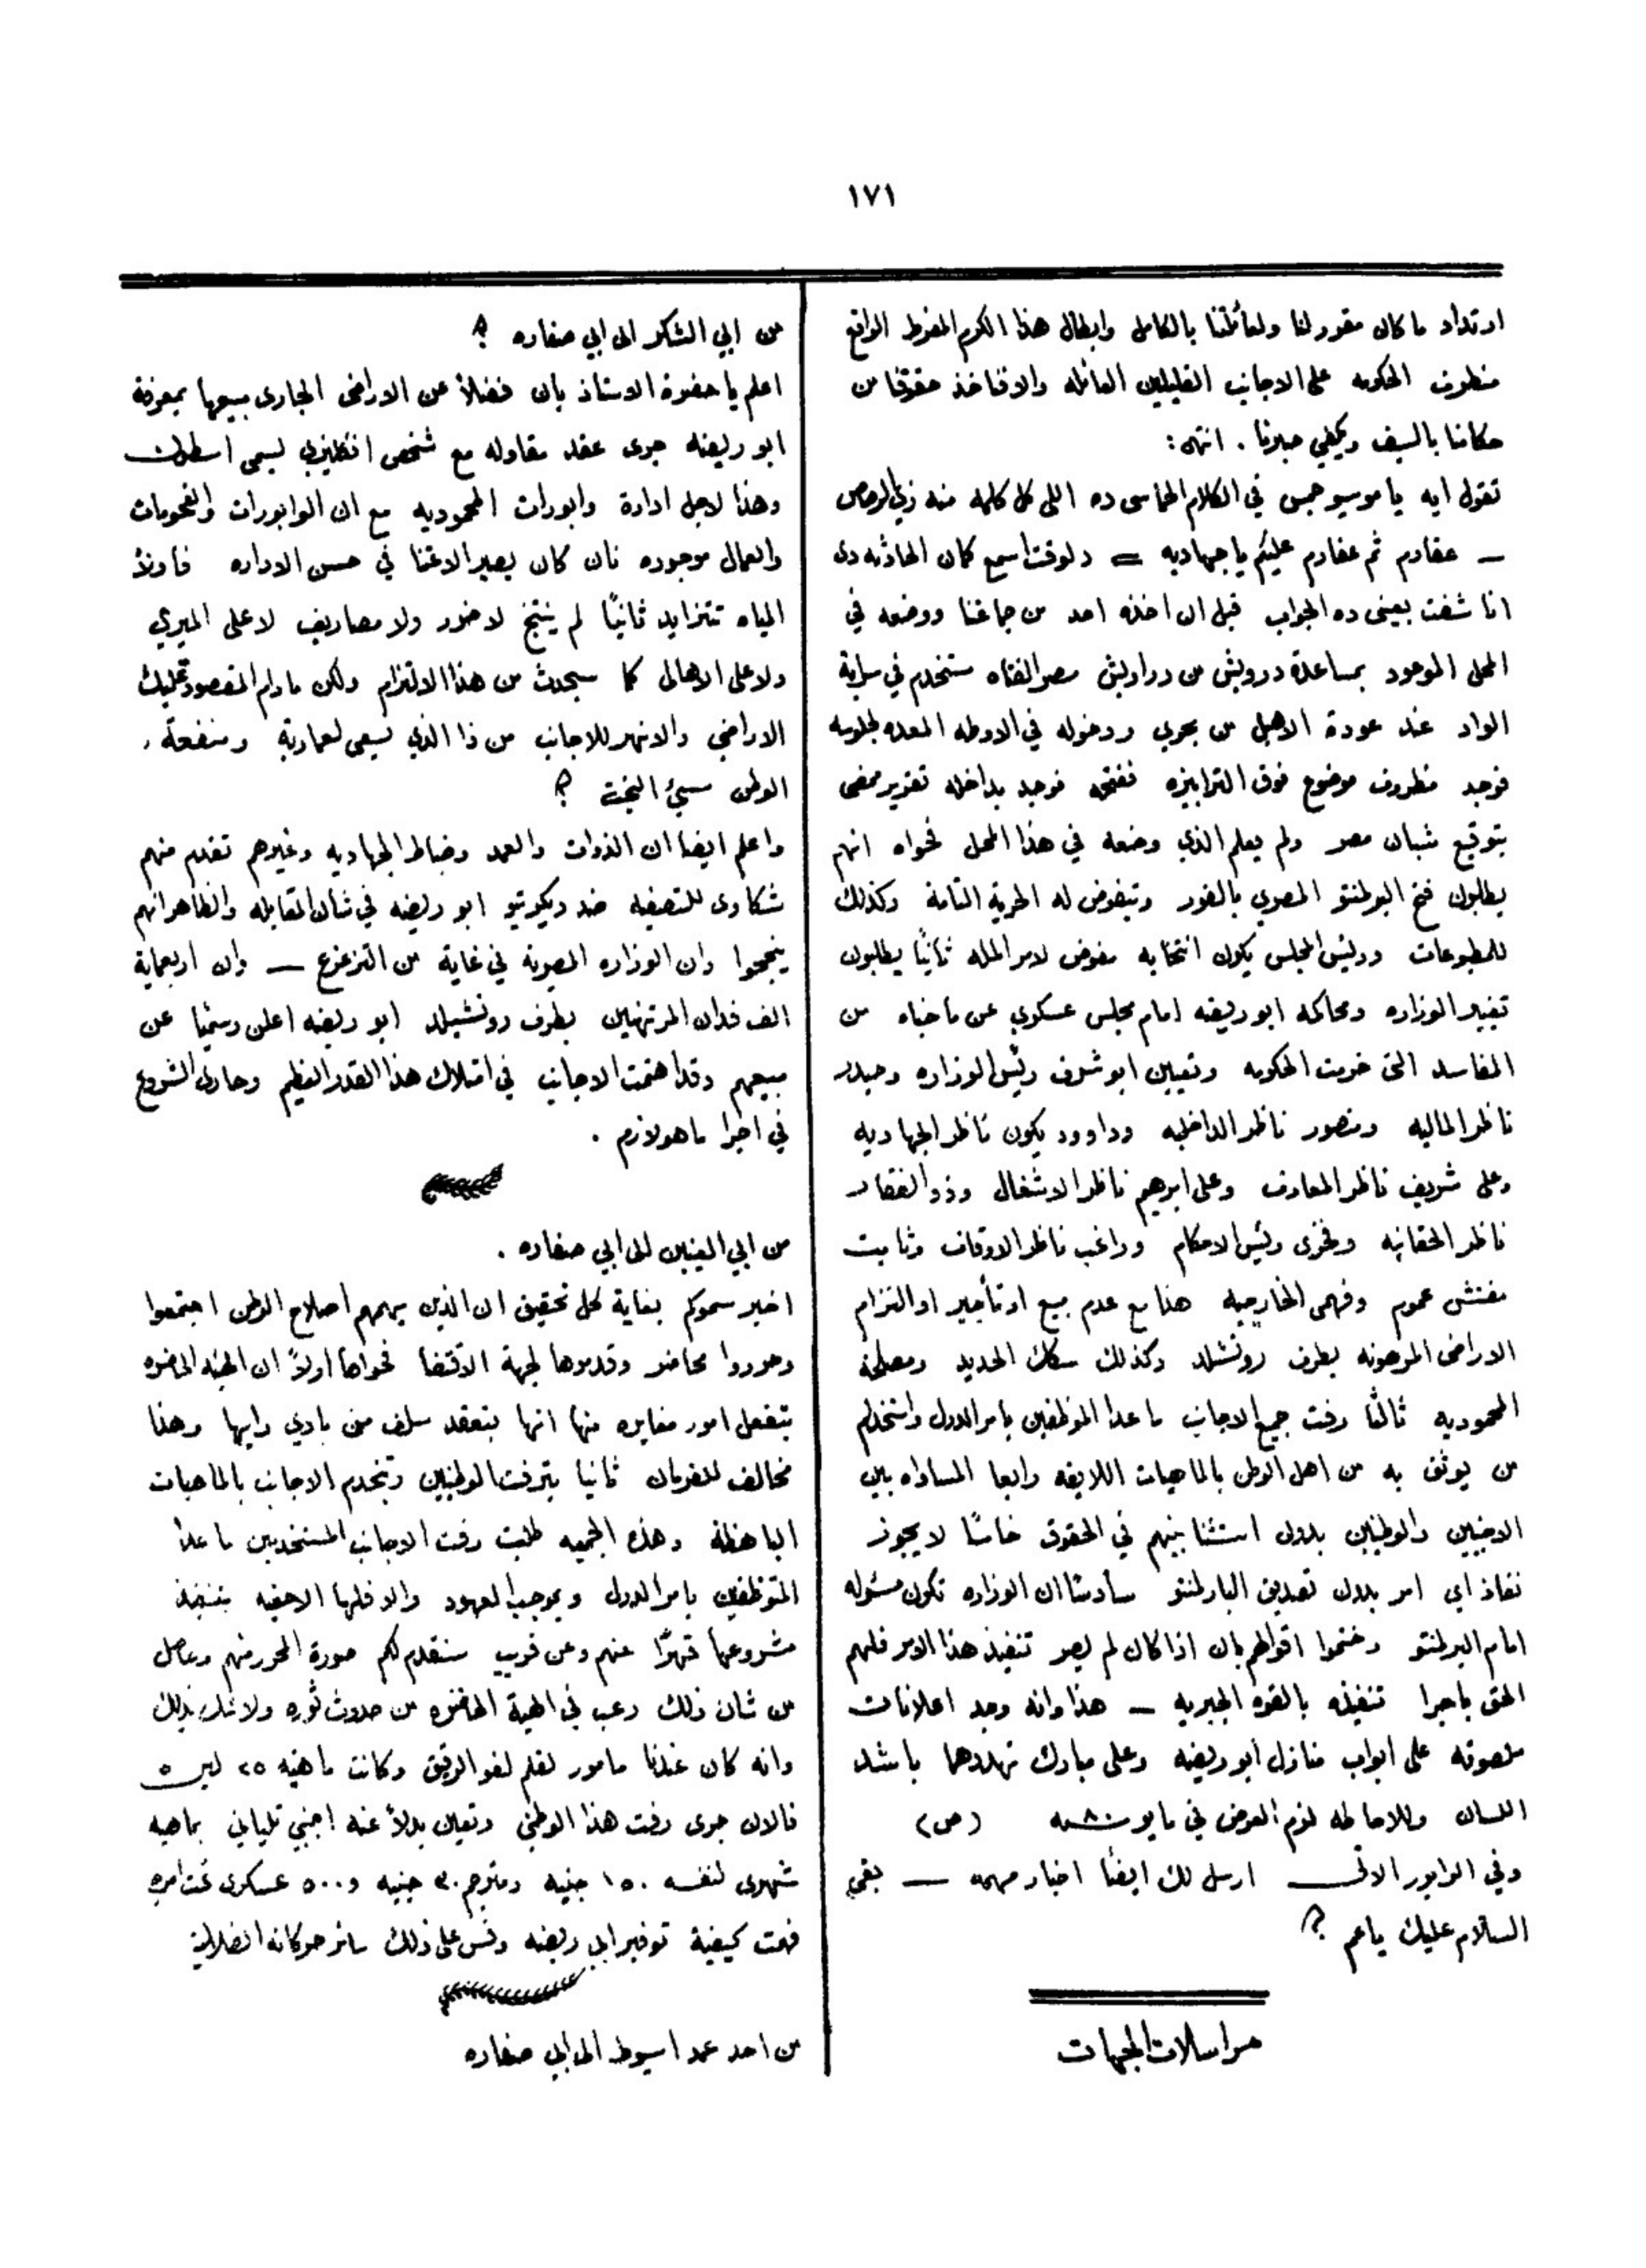 ١٧١
ارتداد ما كان مقرر لنا ولعائلتنا بالكامل وابطال هذا الكرم المفرط الواقع
منطرف الحكومه على الاجانب القليلين العائله والافناخذ حقوقنا من
حكامنا بالسيف ويكفي صبرنا . انتهى :
تقول ايه يا موسيو جمس في الكلام الحماسى ده اللى كل كلمه منه زي الرصاص
— عفارم ثم عفارم عليكم يا جهاديه = دلوقت اسمع كمان الحادثه دى
انا شفت بعينى ده الجواب قبل ان اخذه احد من جماعتنا ووضعه في
المحل الموعود بمساعدة درويش من دراويش مصر الفتاه مستخدم في سراية
الواد عند عودة الاهبل من بحري ودخوله في الاوطه المعده لجلوسه
فوجد مظروف موضوع فوق الترابيزه ففتحه فوجد بداخله تقرير ممضى
بتوقيع شبان مصر ولم يعلم الذي وضعه في هذا المحل فحواه انهم
يطلبون فتح البرلمنتو المصري بالفور وتيفوض له الحرية التامة وكذلك
للمطبوعات ورئيس المجلس يكون انتخابه مفوض لامر المله ثانيًا يطلبون
تغيير الوزاره ومحاكمه ابو ريضه امام مجلس عسكري عن ما جناه من
المفاسد التى خربت الحكومه وتعيين ابو شرف رئيس الوزاره وحيدر
ناظر الماليه ومنصور ناظر الداخليه وداوود يكون ناظر الجهاديه
وعلى شريف ناظر المعارف وعلى ابرهيم ناظر الاشغال وذو الفقار
ناظر الحقانيه وفخرى رئيس الاحكام وراغب ناظر الاوقاف وثابت
مفتش عموم وفهمى الخارجيه هذا مع عدم مبيع او تأجير او التزام
الاراضى المرهونه بطرف روتشلد وكذلك سكك الحديد ومصلحة
المحموديه ثالثًا رفت جميع الاجانب ما عدا الموظفين بامر الدول واستخدام
من يوثق به من اهل الوطن بالماهيات اللايقه رابعا المساواه بين
الاجنبيين والوطنيين بدون استثنا بينهم في الحقوق خامسًا لا يجوز
نفاذ اي امر بدون تصديق البارلمنتو سادسًا ان الوزاره تكون مسئوله
امام البرلمنتو وختموا اقوالهم بان اذا كان لم يصر تنفيذ هذا الامر فلهم
الحق باجرا تنفيذه بالقوه الجبريه — هذا وانه وجد اعلانات
ملصوقه على ابواب منازل ابو ريضه وعلى مبارك تهددهما باشد
اللسان وللاحاطه لزم العرض في مايو سنه ٨٠ (ص)
وفي الوابور الاتى ارسل لك ايضًا اخبار مهمه — بقى
السلام عليك ياعم ؟
مراسلات الجهات
من ابي الشكر الى ابي صفاره ؟
اعلم يا حضرة الاستاذ بان فضلاً عن الاراضى الجارى مبيعها بمعرفة
ابو ريضه جرى عقد مقاوله مع شخص انكليزي يسمى
وهذا لاجل ادارة وابورات المحموديه مع ان الوابورات والفحومات
والعمال موجوده فان كان يصير الاعتنا في حسن الاداره فاولاً
المياه تتزايد ثانيًا لم ينتج لا ضرر ولا مصاريف لا على الميري
ولا على الاهالى كما سيحدث من هذا الالتزام ولكن ما دام المقصود تمليك
الاراضي والانهر للاجانب من ذا الذي يسعى لعمارية ومنفعة .
الوطن سيئ البخت ؟
واعلم ايضا ان الذوات والعمد وضباط الجهاديه وغيرهم تقدم منهم
شكاوى للتصفيه ضد ديكريتو ابو ريضه في شأن المقابله والظاهر انهم
ينجحوا وان الوزاره المصرية في غاية من التزعزع — وان اربعماية
الف فدان المرتهنين بطرف روتشيلد ابو ريضه اعلن رسميًا عن
مبيعهم وقد اهتمت الاجانب في امتلاك هذا القدر العظيم وجارى الشروع
في اجرا ما هو لازم .
من ابي العينين الى ابي صفاره .
اخبر سموكم بغاية كل تحقيق ان الذين يهمهم اصلاح الوطن اجتمعوا
وحرروا محاضر وقدموها لجهة الاقتضا فحواها اولاً ان الهيئه الحاضره
بتفعل امور مغايره منها انها بتعقد سلف من بادي رايها وهذا
مخالف للفرمان ثانيا بترفت الوطنيين وتخدم الاجانب بالماهيات
الباهظة وهذه الجمعيه طلبت رفت الاجانب المستخدمين ما عدا
المتوظفين بامر الدول وبموجب العهود والا فلها الاحقيه بتنفيذ
مشروعها قهرًا عنهم وعن قريب سنقدم لكم صورة المحرر منهم وحاصل
من شان ذلك رعب في الهيئة الحاضره من حدوث ثوره ولا شك بذلك
وانه كان عندنا مامور لقلم لغو الرقيق وكانت ماهيته ٢٥ ليره
فالان جرى رفت هذا الوطني وتعين بدلاً عنه اجنبي تلياني بماهيه
شهرى لنفسه ١٥٠ جنيه ومترجم ٣٠ جنيه و٥٠٠ عسكرى تحت امره
فهمت كيفية توفير ابى ريضه وقس على ذلك سائر حركاته الضلالية
من احد عمد اسيوط الى ابى صفاره